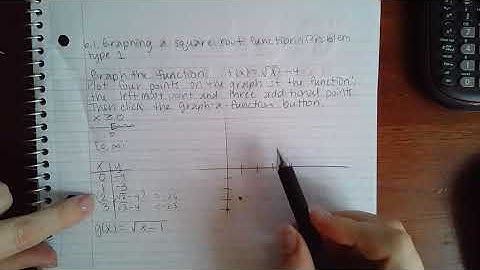 6.1 Graphing a square root function: Problem
type 1
Graph the function: f(x)=√x-4
Plot four points on the graph of the function:
the leftmost point and three additional points
Then click the graph-a-function button.
x ≥ 0
0
[0, ∞)
x y
0 -4
1 -3
2 √2-4
3 √3-4
g(x)=√x-1